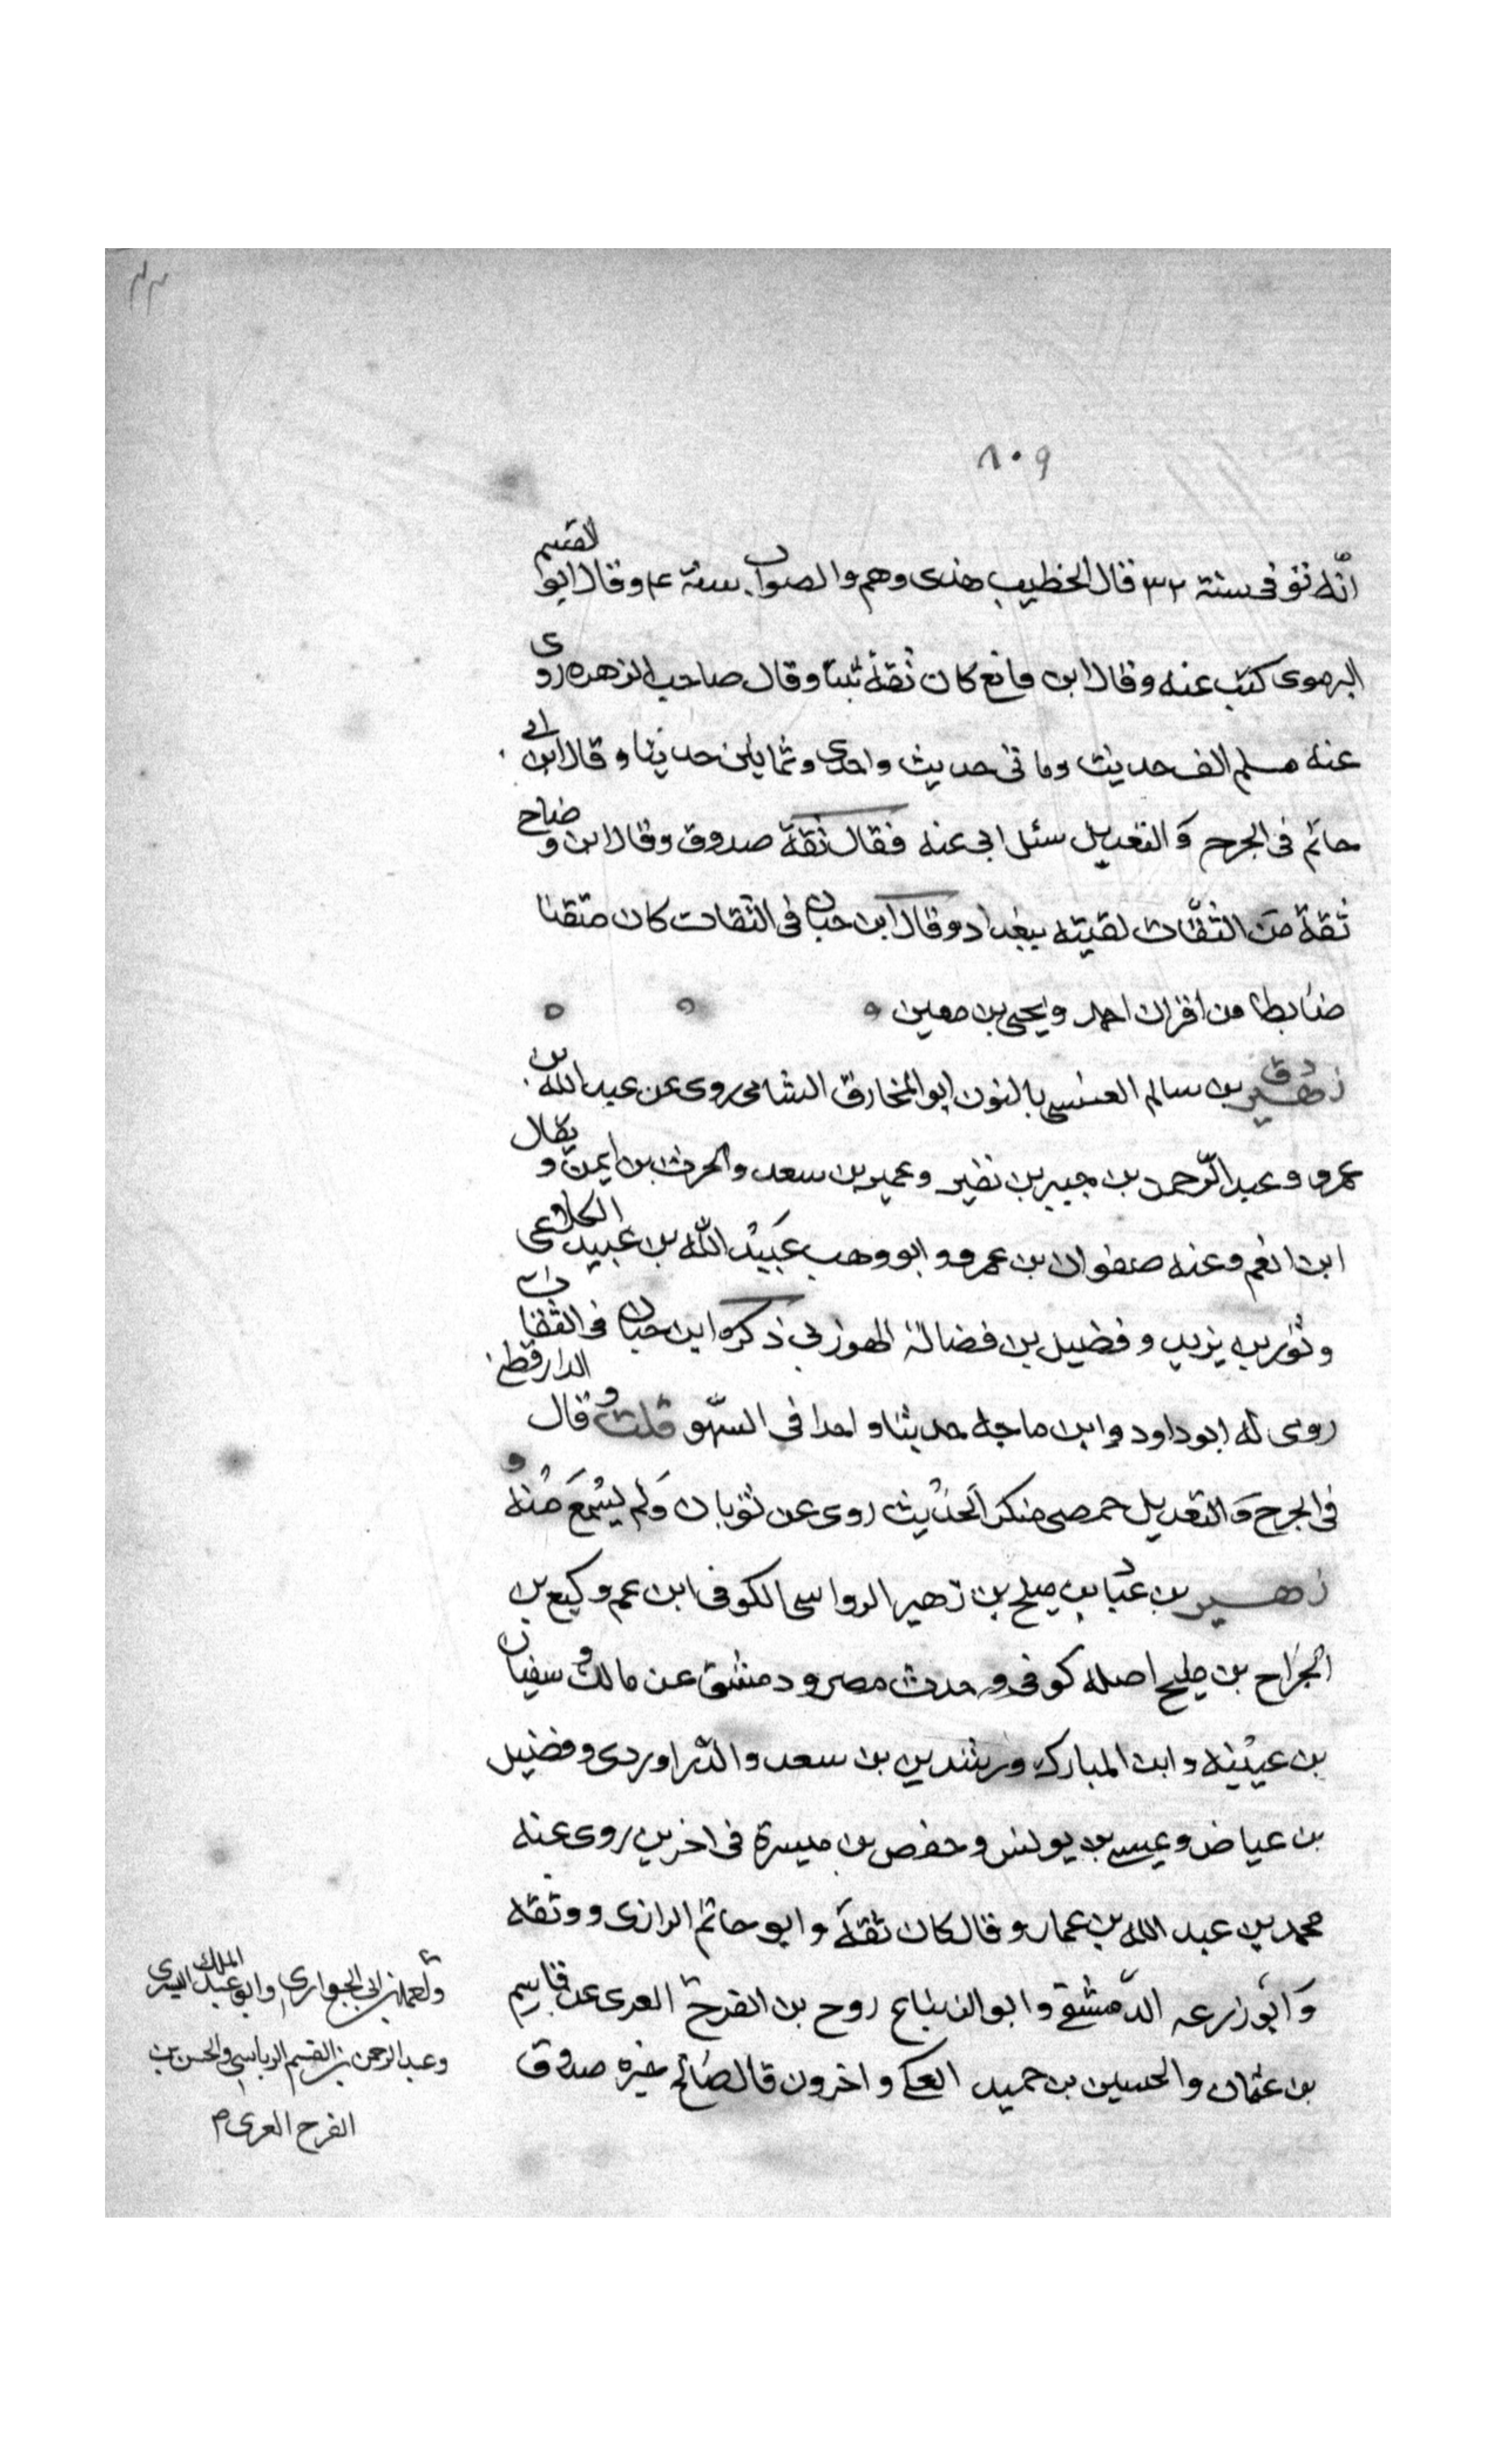 ٨٠٩
انه توفى سنة ٣٢ فقال الخطيب هذى وهم والصواب سنة ٤ وقال ابوا القسم
كتب عنه وقال ابن قانع كان ثقة ثبتا وقال صاحب الزهره روى
عنه مسلم الف حديث وماتى حديث واحدى وثمانين حديثا وقال ابن ابى
حاتم فى الجرح وَ التعديل سئل ابى عنه فقال ثقة صدوق وقال ابن وضاح
ثقة من الثقات لقيته ببغداد وقال ابن حبان فى الثقات كان متقنا
ضابطا من اقران احمد ويحيى بن معين
د ق زهير بن سالم العنسى بالنون ابو المخارق الشامى روى عن عبد الله بن
عمرو وعبد الرّحمن بن جبير بن نضير وعمير بن سعد والحرث بن ايمن ويقال
ابن انعم وعنه صفوان بن عمرو وابو وهب عُبَيْد اللّه بن عبيد الكلاعى
وثور بن يزيد وفضيل بن فضالة الهوزنى ذكره ابن حبان فى الثقات
روى له ابو داود وابن ماجه حديثا واحدا فى السّهو قلت وقال الدارقطنى
فى الجرح وَ التعديل حمصى منكر الحَدْيث روى عن ثوبان وَلم يَسْمَع مْنه و
زهير بن عبّاد بن مليح بن زهير الرواسى الكوفى ابن عم وكيع بن
الجرَاح بن مليح اصله كوفى وحدث مصر ودمشق عن مالك وسفيان
بن عيْنيْه وابن المبارك ورشدين بن سعد والدّراوردى وفضيل
بن عياض وعيسى بن يونس وحفص بن ميسرة فى اخرين روى عنه
محمد بن عبد الله بن عمار وقال كان ثقة وابو حاتم الرازى ووثقه
وَابُو زرعه الدّمشقى وابو الزنباع روح بن الفرح العرى عن قاسم
بن عثمان والحسين بن حميد العكى واخرون قال صَالح جزره صدوق
وابو عبد الملك البسرى
وعبد الرحمن بن القسم والحسن بن
الفرح العرى م